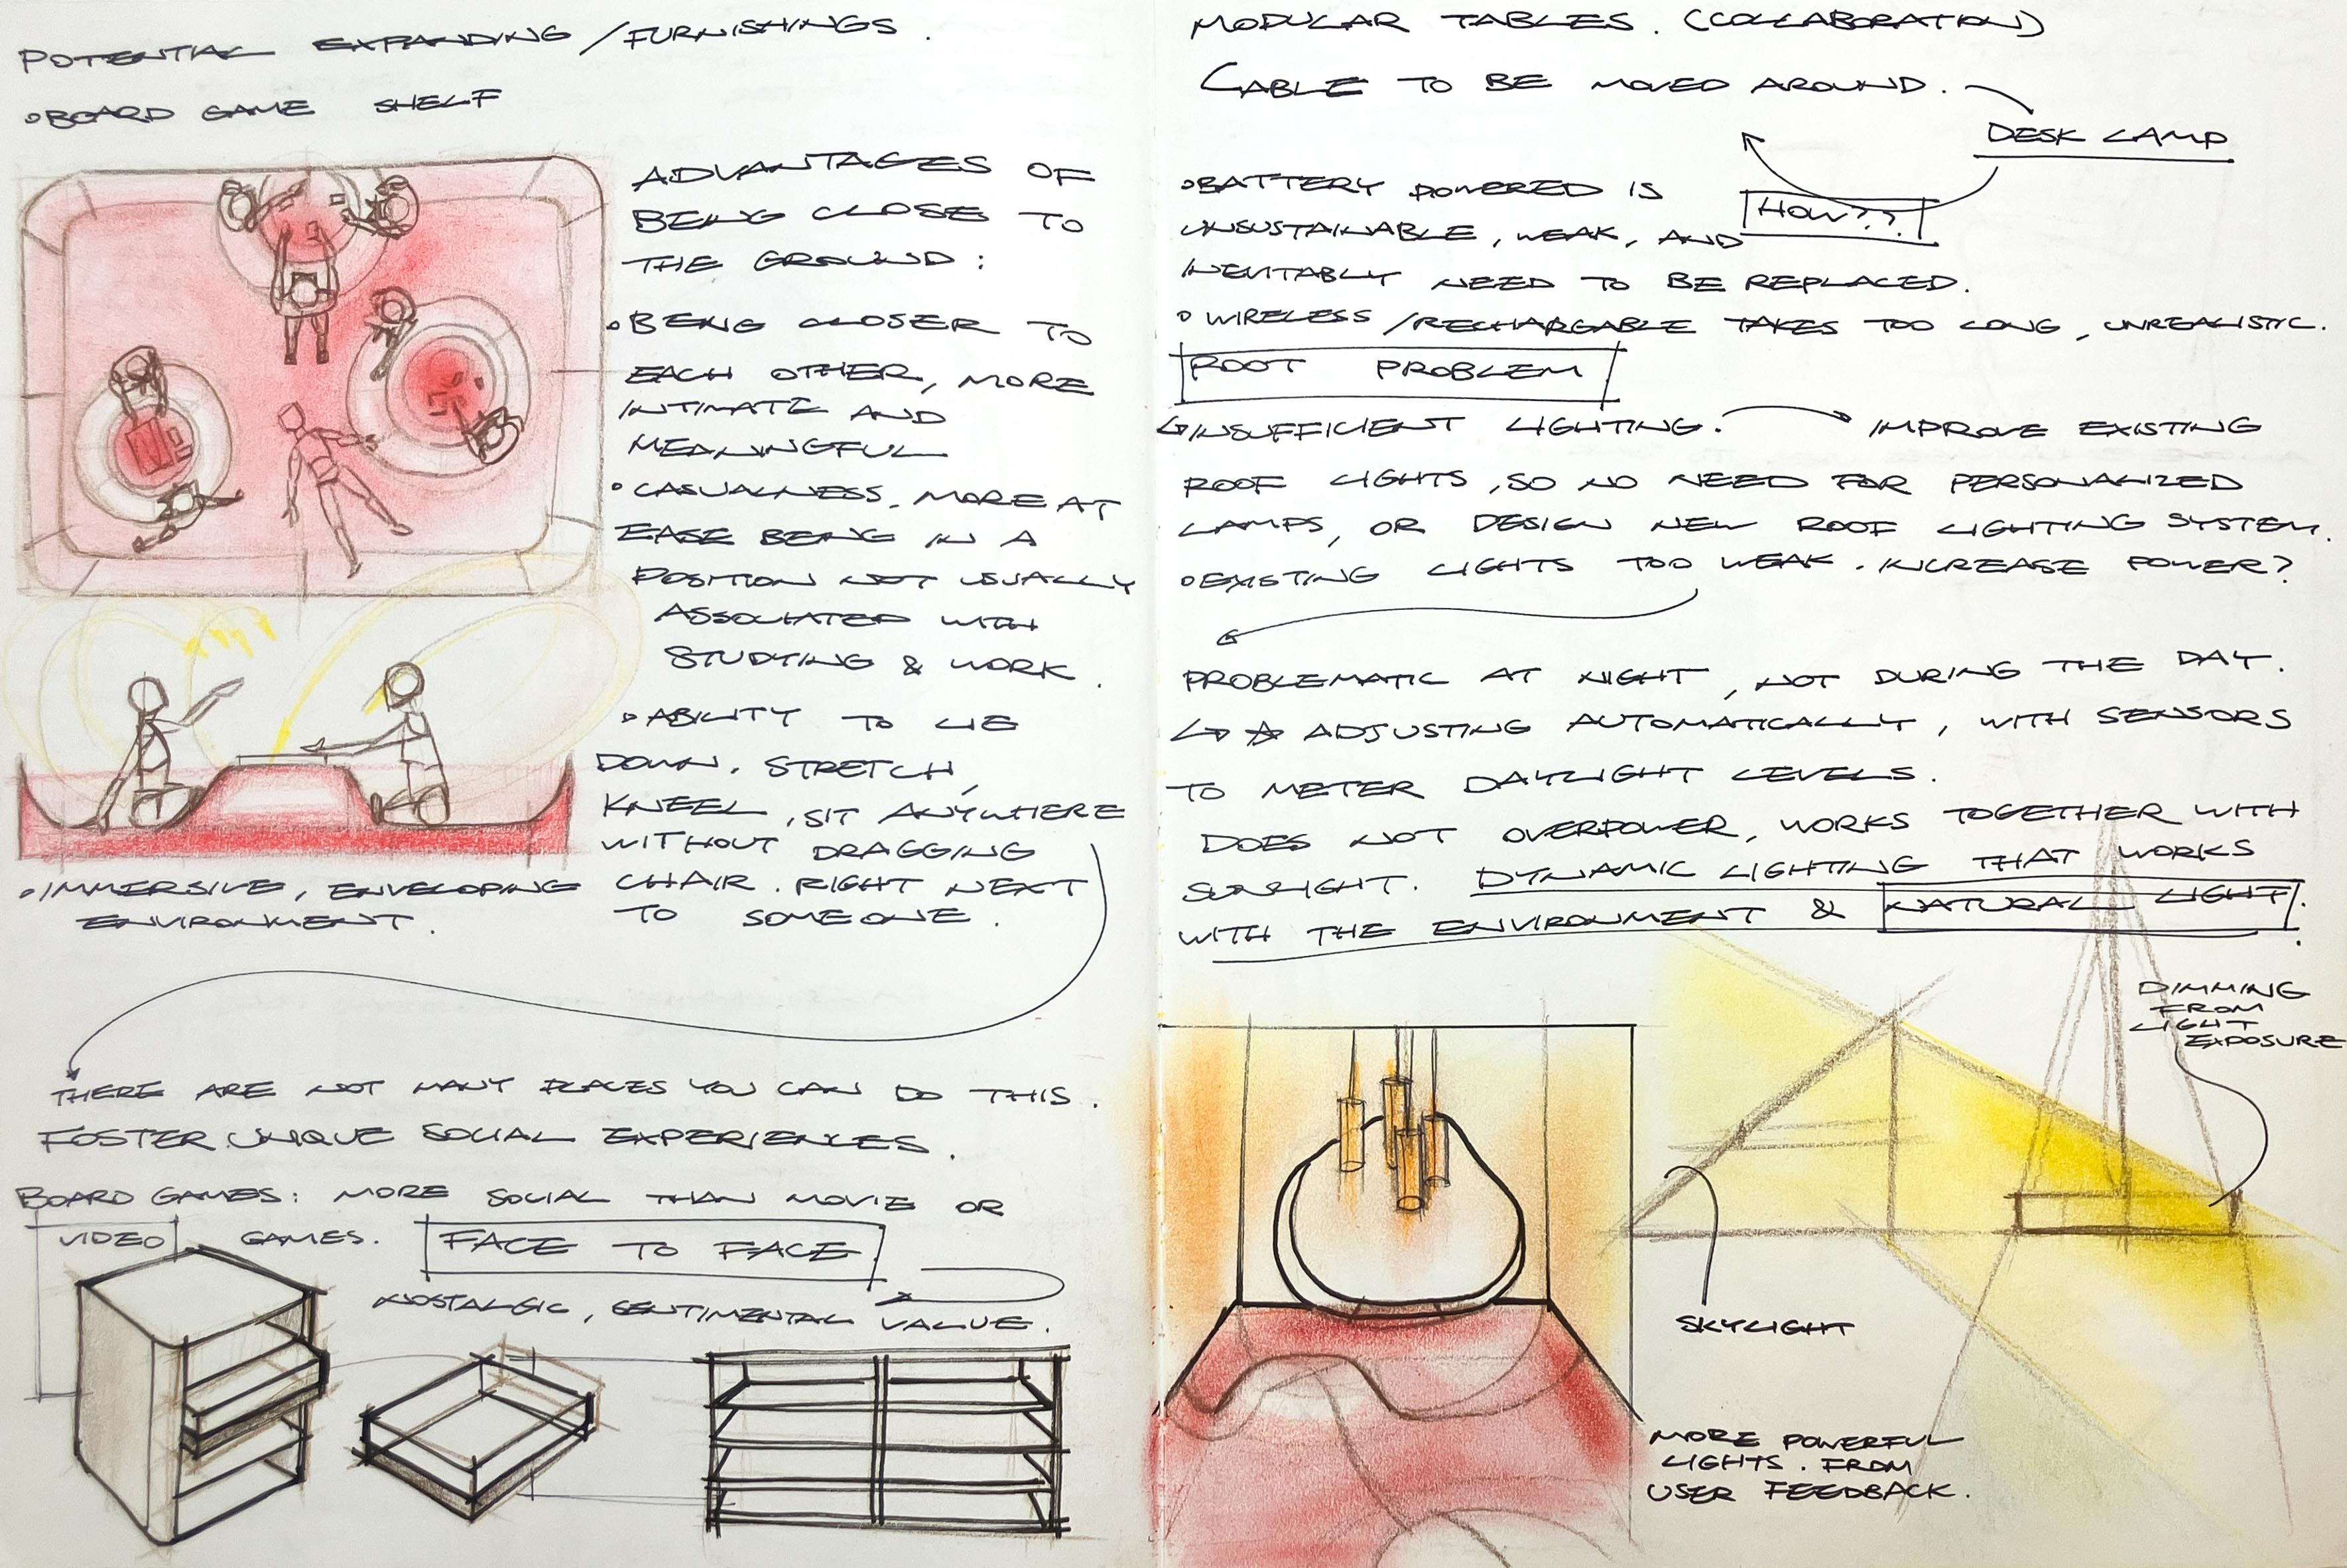 POTENTIAL EXPANDING / FURNISHINGS.
•BOARD GAME SHELF
ADVANTAGES OF
BEING CLOSE TO
THE GROUND:
•BEING CLOSER TO
EACH OTHER, MORE
INTIMATE AND
MEANINGFUL
•CASUALNESS. MORE AT
EASE BEING IN A
POSITION NOT USUALLY
ASSOCIATED WITH
STUDYING & WORK.
•ABILITY TO LIE
DOWN, STRETCH,
KNEEL, SIT ANYWHERE
WITHOUT DRAGGING
CHAIR. RIGHT NEXT
TO SOMEONE.
•IMMERSIVE, ENVELOPING
ENVIRONMENT.
THERE ARE NOT MANY PLACES YOU CAN DO THIS.
FOSTER UNIQUE SOCIAL EXPERIENCES.
BOARD GAMES: MORE SOCIAL THAN MOVIE OR
VIDEO GAMES. FACE TO FACE
NOSTALGIC, SENTIMENTAL VALUE.
MODULAR TABLES. (COLLABORATION)
CABLE TO BE MOVED AROUND.
DESK LAMP
HOW??
•BATTERY POWERED IS
UNSUSTAINABLE, WEAK, AND
INEVITABLY NEED TO BE REPLACED.
•WIRELESS/RECHARGABLE TAKES TOO LONG, UNREALISTIC.
ROOT PROBLEM
↳INSUFFICIENT LIGHTING. → IMPROVE EXISTING
ROOF LIGHTS, SO NO NEED FOR PERSONALIZED
LAMPS, OR DESIGN NEW ROOF LIGHTING SYSTEM.
•EXISTING LIGHTS TOO WEAK. INCREASE POWER?
PROBLEMATIC AT NIGHT, NOT DURING THE DAY.
↳ ☆ ADJUSTING AUTOMATICALLY, WITH SENSORS
TO METER DAYLIGHT LEVELS.
DOES NOT OVERPOWER, WORKS TOGETHER WITH
SUNLIGHT. DYNAMIC LIGHTING THAT WORKS
WITH THE ENVIRONMENT & NATURAL LIGHT.
DIMMING
FROM
LIGHT
EXPOSURE
SKYLIGHT
MORE POWERFUL
LIGHTS. FROM
USER FEEDBACK.